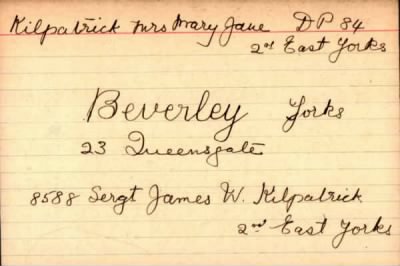 Kilpatrick Mrs Mary Jane DP 84
2nd East Yorks
Beverley Yorks
23 Queensgate
8588 Sergt James W. Kilpatrick
2nd East Yorks